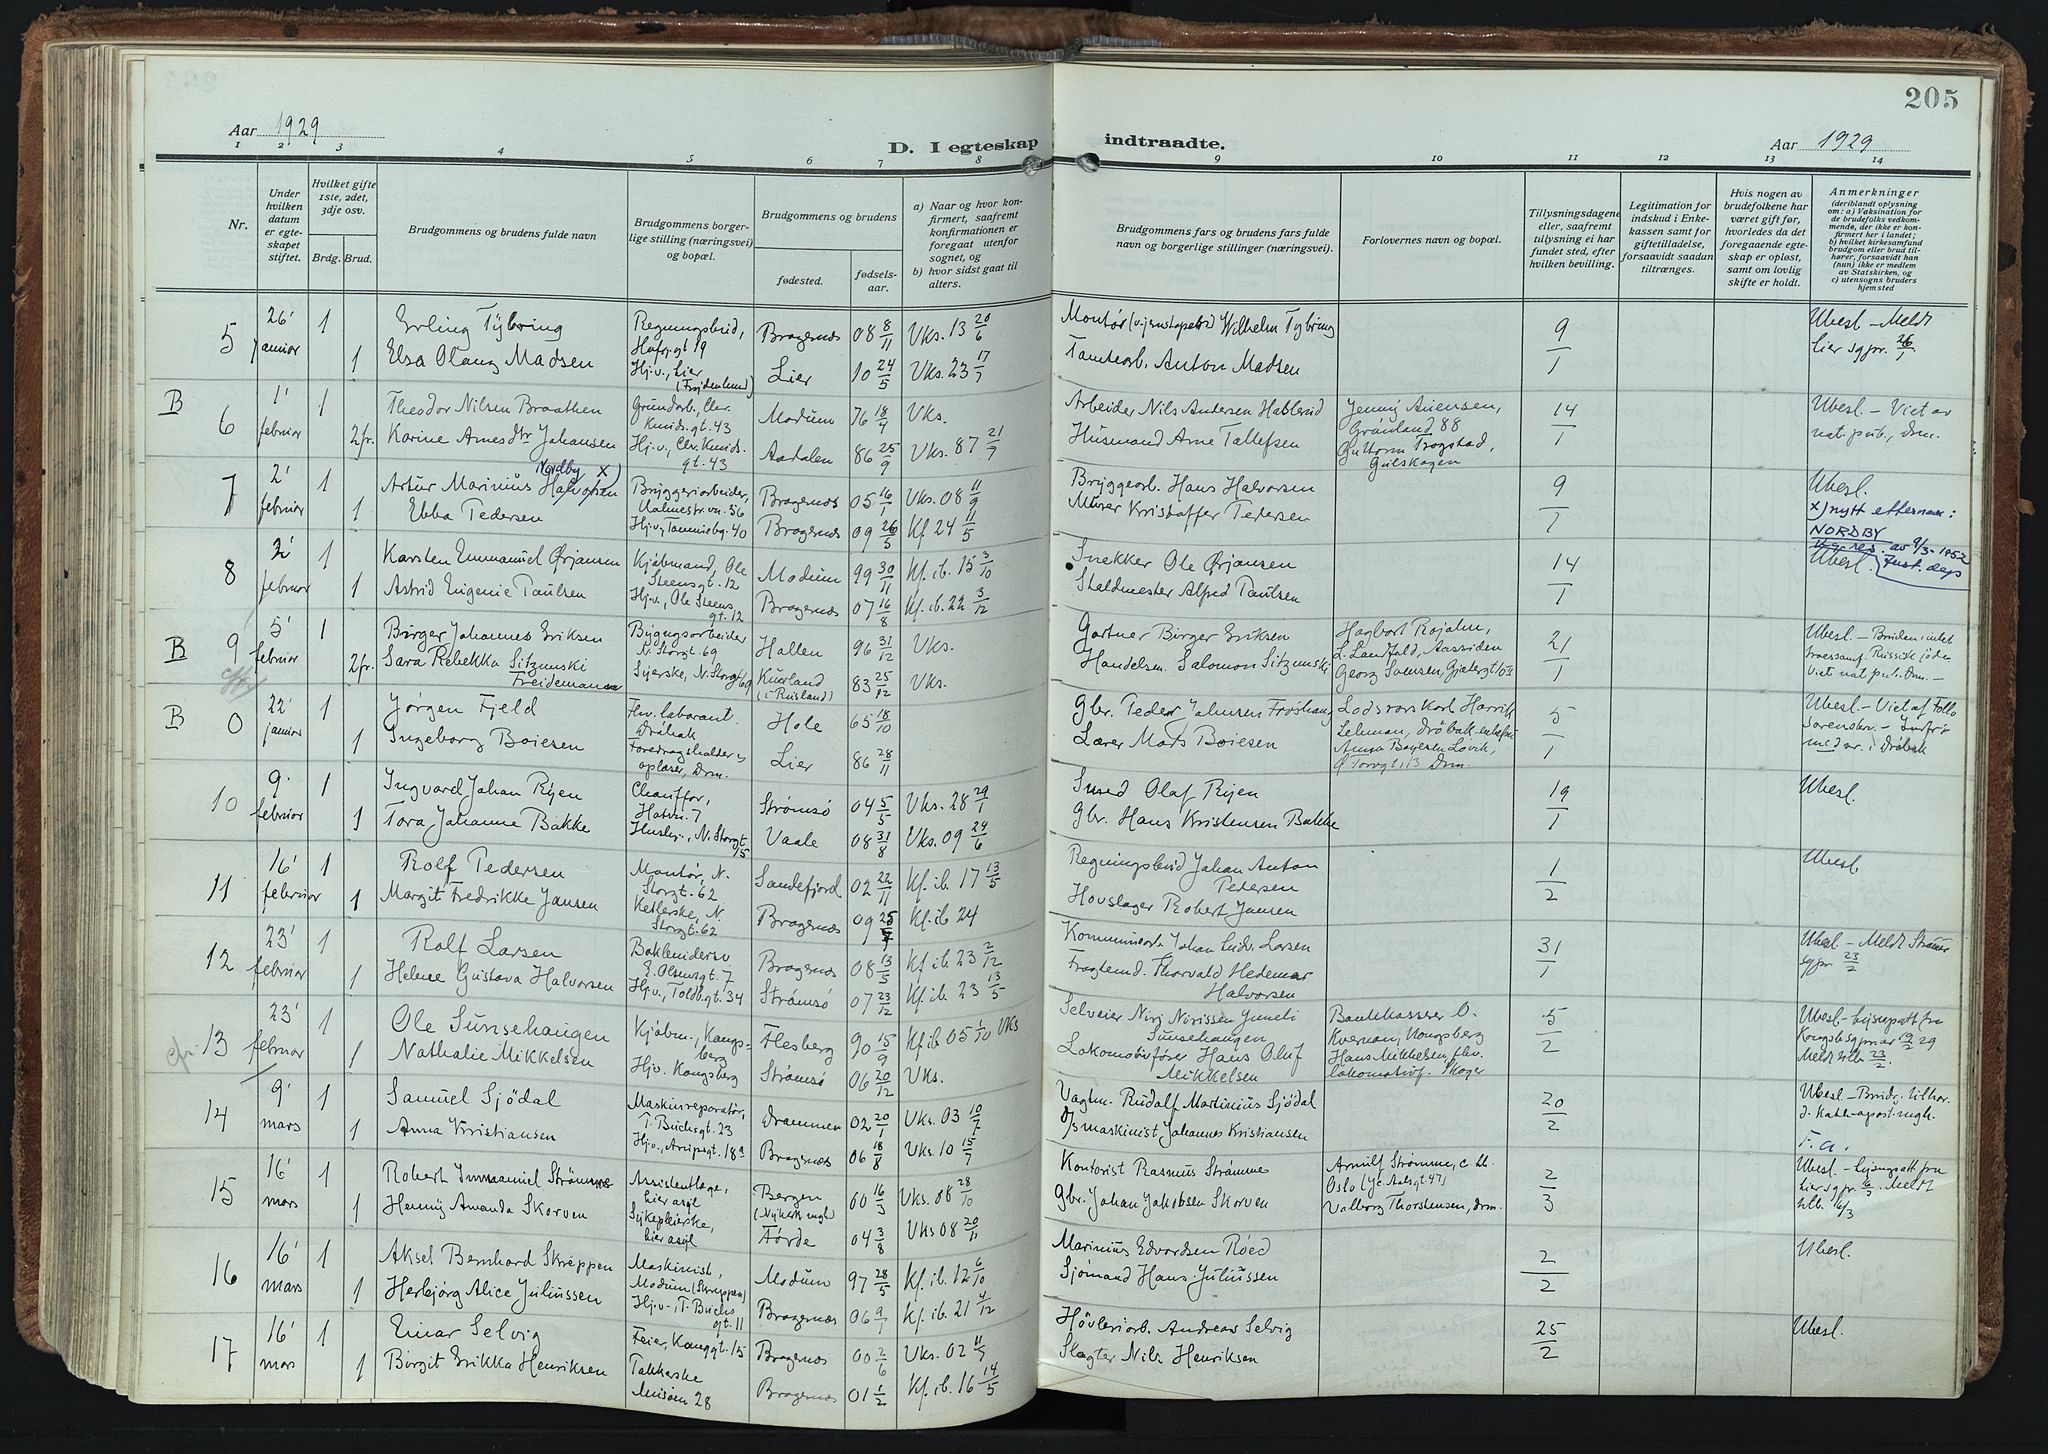 205
Aar 1929
D. I egteskap indtraadte.
Aar 1929
1 2 3 4 5 6 7 8 9 10 11 12 13 14
Nr.
Under hvilken datum er egteskapet stiftet.
Hvilket gifte 1ste, 2det, 3dje osv.
Brdg. Brud.
Brudgommens og brudens fulde navn
Brudgommens borgerlige stilling (næringsvei) og bopæl.
Brudgommens og brudens
fødested. fødselsaar.
a) Naar og hvor konfirmert, saafremt konfirmationen er foregaat utenfor sognet, og
b) hvor sidst gaat til alters.
Brudgommens fars og brudens fars fulde navn og borgerlige stillinger (næringsvei).
Forlovernes navn og bopæl.
Tillysningsdagene eller, saafremt tillysning ei har fundet sted, efter hvilken bevilling.
Legitimation for indskud i Enkekassen samt for giftetilladelse, forsaavidt saadan tiltrænges.
Hvis nogen av brudefolkene har været gift før, hvorledes da det foregaaende egteskap er opløst, samt om lovlig skifte er holdt.
Anmerkninger
(deriblandt oplysning om: a) Vaksination for de brudefolks vedkommende, der ikke er konfirmert her i landet;
b) hvilket kirkesamfund brudgom eller brud tilhører, forsaavidt han (hun) ikke er medlem av Statskirken, og
c) utensogns bruders hjemsted
5 26' januar 1 Erling Tybring Regningsbud, Havnegt 19 Bragernes 08 8/11 Vks. 13 20/6 Montør Wilhelm Tybring 9/1 Ubesl. - Meldt
1 Elsa Olaug Madsen Hj.v., Lier (Frydenlund) Lier 10 24/5 Vks. 23 17/7 Tomtearb. Anton Madsen Lier sgpr. 26/1
B 6 1' februar 1 Theodor Nilsen Braathen Grundarb., Clev. Knuds. gt. 43 Modum 76 18/4 Vks. Arbeider Nils Andersen Hablerud Jenny Arnesen, Grønland 88 14/1 Ubesl. - Viet av
2fr. Karine Arnesdtr Johansen Hj.v., Clev. Knuds. gt. 43 Aadalen 86 25/9 Vks. 87 21/7 Husmand Arne Tollefsen Guttorm Frogstad, Gulskogen not. pub., Drm.
7 2' februar 1 Artur Marinius Halvorsen Nordby x) Bryggeriarbeider, 56 Bragernes 05 16/1 Vks. 08 11/9 Bryggearb. Hans Halvorsen 9/1 Ubesl.
1 Ebba Pedersen Hj.v., 40 Bragernes 09 26/5 Kf 24 1/5 Murer Kristoffer Pedersen x) nytt etternavn: NORDBY
Kg. res. av 9/3-1952 Just. dep
8 2' februar 1 Karsten Emmanuel Ørjansen Kjøbmand, Ole Steens gt. 12 Modum 99 30/11 Kf. ib. 15 3/10 Snekker Ole Ørjansen 14/1 Ubesl.
1 Astrid Eugenie Paulsen Hj.v., Ole Steens gt. 12 Bragernes 07 16/8 Kf. ib. 22 3/12 Staldmester Alfred Paulsen
B 9 5' februar 1 Birger Johannes Eriksen Bygningsarbeider N. Storgt. 69 Hallen 96 31/12 Vks. Gartner Birger Eriksen Hagbart Rojahn, L. Landfald, Aassiden 21/1 Ubesl. - Bruden: intet
2fr. Sara Rebekka Sitzunski Freidemann Syerske, N. Storgt 69 Kurland (i Rusland) 83 25/12 Vks. Handelsm. Salomon Sitzunski Georg Svensen, troessamf. Russisk jøde. Viet not. pub. Drm. -
B 0 22' januar 1 Jørgen Fjeld Fhv. laborant. Drøbak Hole 65 18/10 Gbr. Peder Johnsen Lods 5/1 Ubesl. - Viet af Follo
1 Ingeborg Boiesen Foredragsholder oplæser, Drm. Lier 86 28/11 Lærer Mads Boiesen Ø Torvgt. 13 Drm. Sorenskr. - Indført med nr. i Drøbak
10 9' februar 1 Ingvard Johan Ryen Chauffør, Havn. 7 Strømsø 04 5/5 Vks. 28 29/1 Smed Olaf Ryen 19/1 Ubesl.
1 Tora Johanne Bakke Husbest., N. Storgt 15 Vaale 08 31/8 Vks. 09 24/6 Gbr. Hans Kristensen Bakke
11 16' februar 1 Rolf Pedersen Montør, N. Storgt. 62 Sandefjord 02 22/11 Kf. ib. 17 13/5 Regningsbud Johan Anton Petersen 1/2 Ubesl.
1 Margit Fredrikke Jansen N. Storgt. 62 Bragernes 09 25/7 Kf. ib 24 Hovslager Robert Jansen
12 23' februar 1 Rolf Larsen E. Olsensgt. 7 Bragernes 08 13/5 Kf. ib. 23 2/12 Kommunearb. Johan Larsen 31/1 Ubesl - Meldt Strømsø
1 Helene Gustava Halvorsen Hj.v., Toldb.gt. 34 Strømsø 07 23/12 Kf. ib. 23 13/5 Fragtemd. Thorvald Hedemar Halvorsen sgpr 23/2
cfr. 13 23' februar 1 Ole Sunsehaugen Kjøbm., Kongsberg Flesberg 90 15/9 Kf ib 05 1/10 Vks Selveier Niri Nirissen Sunsehaugen Bankkasserer O. Kvernan, Kongsberg 5/2 Ubesl. - lysn.patt fra
1 Nathalie Mikkelsen Hj.v. Kongsberg Strømsø 06 20/12 Vks. Lokomotivfører Hans Oluf Mikkelsen Hans Mikkelsen, fhv. lokomotivf. Skoger Kongsb. sgpr av 29 Meldt 23/2
14 9' mars 1 Samuel Sjødal Maskinreparatør, T. Buchsgt. 23 Drammen 02 20/1 Vks. 03 10/7 Vagtm. Rudolf Martinius Sjødal 20/2 Ubesl - Brudg. tilhør.
1 Anna Kristiansen Hj.v., 18a Bragernes 06 18/8 Vks. 10 15/7 D/S maskinist Johannes Kristiansen d. Kath.-apost. mgh.
F. a.
15 16' mars 1 Robert Immanuel Strømme Assistentlæge, Lier asyl Bergen (Nykirk mgh) 00 16/3 Vks. 08 28/10 Kontorist Rasmus Strømme Arnulf Strømme, Oslo 2/3 Ubesl. - lysn.patt fra
1 Henny Amanda Skorven Sykepleierske, Lier asyl Førde 04 3/8 Vks 08 20/11 Gbr. Johan Jakobsen Skorven Valborg Thorstensen, Drm. Lier sgpr. 6/3. Meldt 16/3
16 16' mars 1 Aksel Bernhard Skreppen Maskinist, Modum (Skreppen) Modum 97 28/5 Kf. ib. 12 6/10 Marinius Edvardsen Røed 2/2 Ubesl.
1 Herbjørg Alice Juliussen Hj.v., T. Buchs gt. 11 Bragernes 06 9/1 Kf. ib. 21 4/12 Sjømand Hans Juliussen
17 16' mars 1 Einar Selvig Feier, Konggt. 15 Bragernes 00 2/6 Vks. 02 11/7 Høvleriarb. Andreas Selvig 25/2 Ubesl.
1 Birgit Erikka Henriksen 28 Bragernes 01 1/2 Kf. ib. 16 14/5 Slagter Nils Henriksen